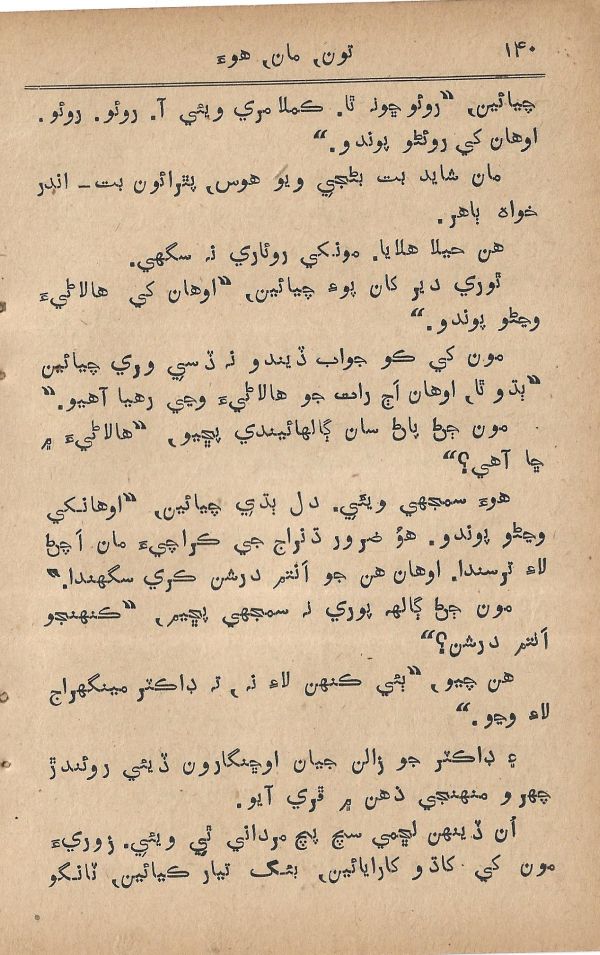 ۱۴۰
تون, مان, هوءَ
چيائين, “روئو ڇونہ ٿا. ڪملا مري ويئي آ. روئو. روئو.
اوهان کي روئڻو پوندو.“
مان شايد بت بڻجي ويو هوس, پٿرائون بت ــ اندر
خواه ٻاهر.
هن حيلا هلايا. مونکي روئاري نہ سگهي.
ٿوري دير کان پوءِ چيائين, “اوهان کي هالاڻيءَ
وڃڻو پوندو.“
مون کي ڪو جواب ڏيندو نہ ڏسي وري چيائين
“ٻڌو ٿا, اوهان اَڄ رات جو هالاڻيءَ وڃي رهيا آهيو.“
مون ڄڻ پاڻ سان ڳالهائيندي پڇيو, “هالاڻيءَ ۾
ڇا آهي؟“
هوءَ سمجهي ويئي. دل ٻڌي چيائين, “اوهانکي
وڃڻو پوندو. هوُ ضرور ڌنراج جي ڪراچيءَ مان اَچڻ
لاءِ ترسندا. اوهان هن جو اَنتم درشن ڪري سگهندا.“
مون ڄڻ ڳالهہ پوري نہ سمجهي پڇيم, “ڪنهنجو
اَنتم درشن؟“
هن چيو, “ٻئي ڪنهن لاءِ نہ, تہ ڊاڪٽر مينگهراج
لاءِ وڃو.“
۽ ڊاڪٽر جو زالن جيان اوڇنگارون ڏيئي روئندڙ
چهرو منهنجي ذهن ۾ ڦري آيو.
اُن ڏينهن لڇمي سچ پچ مرداني ٿي ويئي. زوريءَ
مون کي کاڌو کارايائين, بئگ تيار ڪيائين, ٽانگو